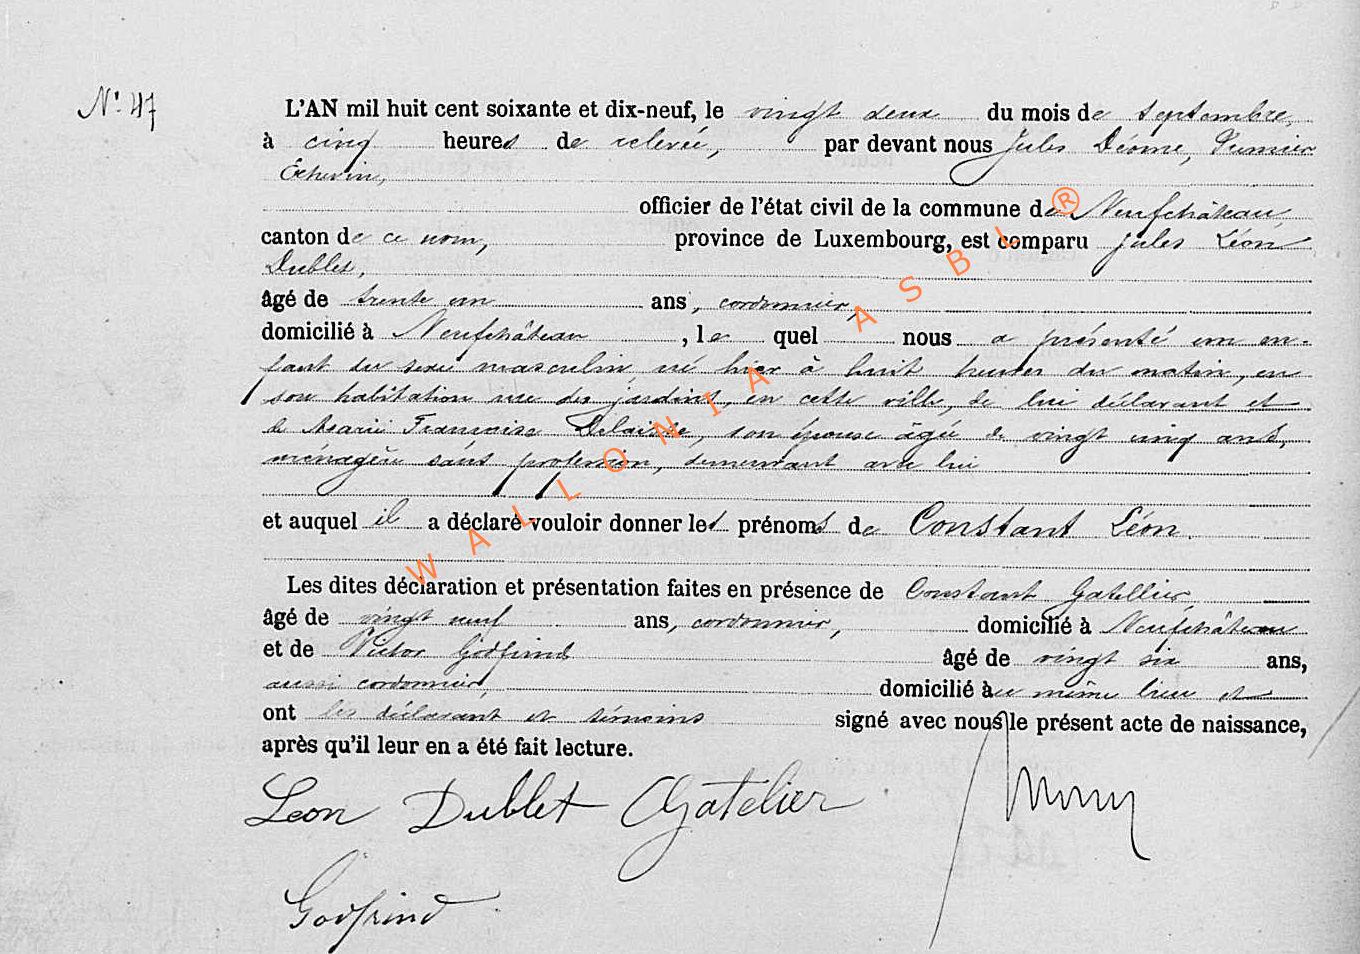 N° 47
L'AN mil huit cent soixante et dix-neuf, le vingt deux du mois de septembre,
à cinq heures de relevée, par devant nous Jules Déome, Premier
Echevin,
officier de l'état civil de la commune de Neufchâteau
canton de ce nom, province de Luxembourg, est comparu Jules Léon
Dublet,
âgé de trente un ans, cordonnier,
domicilié à Neufchâteau, lequel nous a présenté un en-
fant du sexe masculin, né hier à huit heures du matin, en
son habitation rue des jardins, en cette ville, de lui déclarant et
de Marie Françoise son épouse âgée de vingt cinq ans,
ménagère sans profession, demeurant avec lui
et auquel il a déclaré vouloir donner les prénoms de Constant Léon.
Les dites déclaration et présentation faites en présence de Constant Gatellier,
âgé de vingt neuf ans, cordonnier, domicilié à Neufchâteau
et de Victor Godfrind âgé de vingt six ans,
aussi cordonnier, domicilié au même lieu et
ont les déclarant et témoins signé avec nous le présent acte de naissance,
après qu'il leur en a été fait lecture.
Leon Dublet Gatelier
Godfrind
WALLONIA ASBL ®